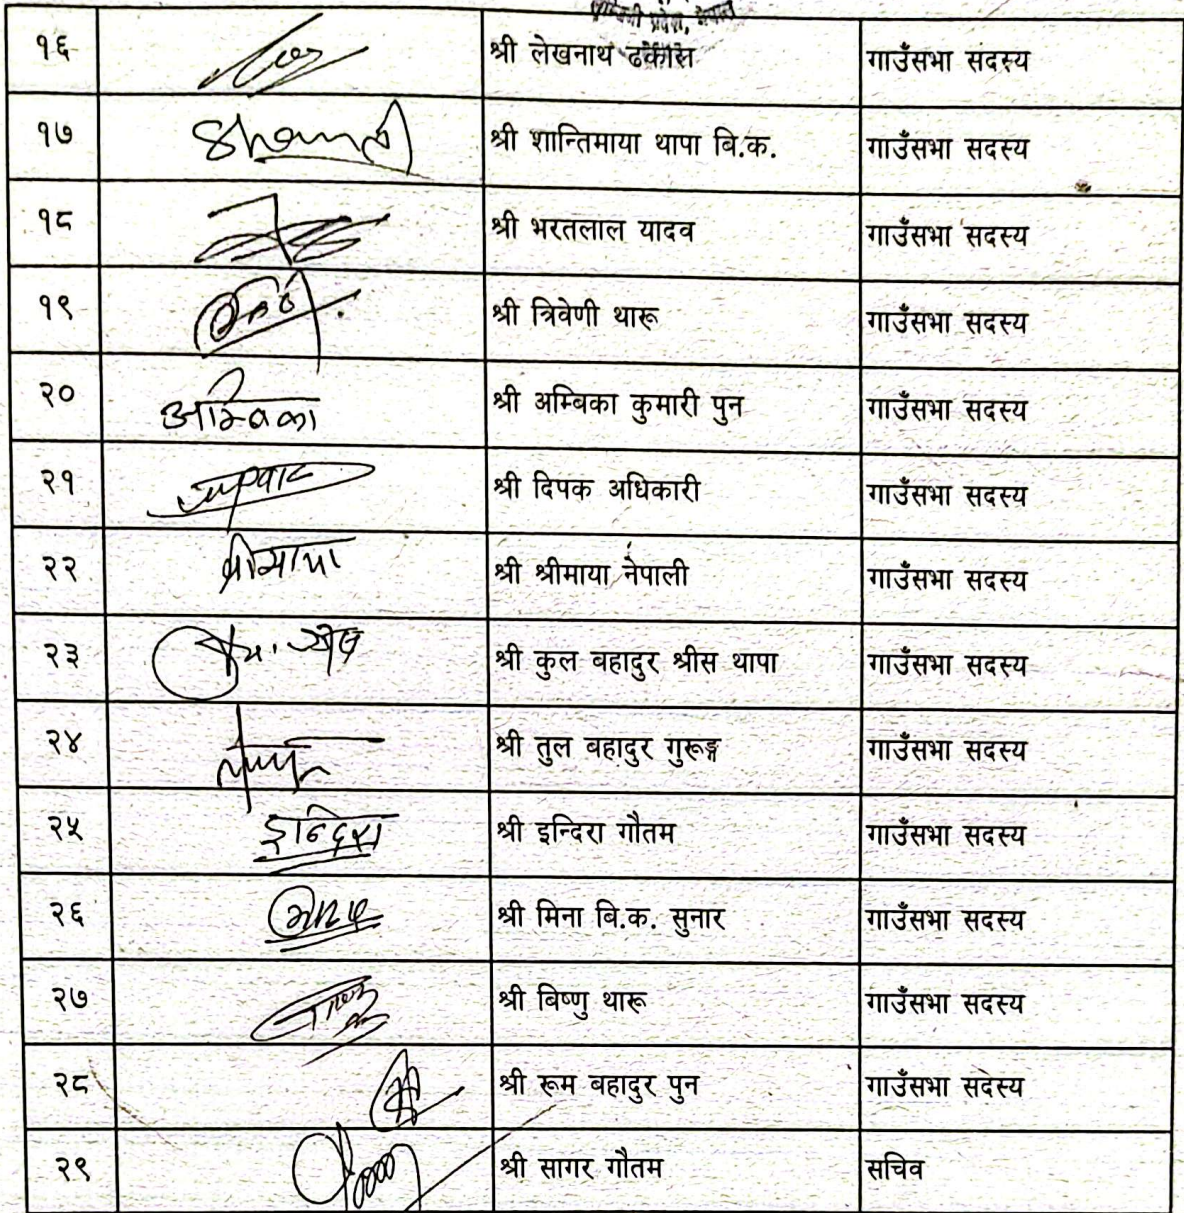 प्रदेश, नेपाल
१६ श्री लेखनाथ ढकाल गाउँसभा सदस्य
१७ श्री शान्तिमाया थापा बि.क. गाउँसभा सदस्य
१८ श्री भरतलाल यादव गाउँसभा सदस्य
१९ श्री त्रिवेणी थारू गाउँसभा सदस्य
२० अम्बिका श्री अम्बिका कुमारी पुन गाउँसभा सदस्य
२१ श्री दिपक अधिकारी गाउँसभा सदस्य
२२ श्रीमाया श्री श्रीमाया नेपाली गाउँसभा सदस्य
२३ श्री कुल बहादुर श्रीस थापा गाउँसभा सदस्य
२४ श्री तुल बहादुर गुरूङ्ग गाउँसभा सदस्य
२५ इन्दिरा श्री इन्दिरा गौतम गाउँसभा सदस्य
२६ श्री मिना बि.क. सुनार गाउँसभा सदस्य
२७ श्री बिष्णु थारू गाउँसभा सदस्य
२८ श्री रूम बहादुर पुन गाउँसभा सदस्य
२९ श्री सागर गौतम सचिव